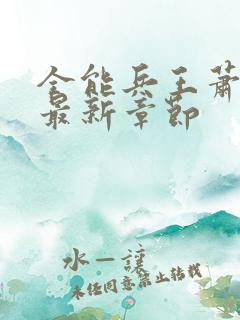 全能兵王萧
最新章节
水一让
未经同意禁止转载